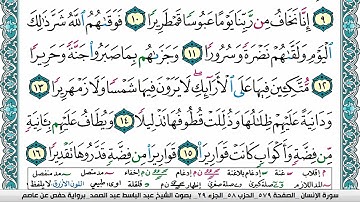 ٩ إِنَّا نَخَافُ مِن رَّبِّنَا يَوْمًا عَبُوسًا قَمْطَرِيرًا ١٠ فَوَقَىٰهُمُ ٱللَّهُ شَرَّ ذَٰلِكَ
ٱلْيَوْمِ وَلَقَّىٰهُمْ نَضْرَةً وَسُرُورًا ١١ وَجَزَىٰهُم بِمَا صَبَرُوا۟ جَنَّةً وَحَرِيرًا
١٢ مُّتَّكِـِٔينَ فِيهَا عَلَى ٱلْأَرَآئِكِ ۖ لَا يَرَوْنَ فِيهَا شَمْسًا وَلَا زَمْهَرِيرًا ١٣
وَدَانِيَةً عَلَيْهِمْ ظِلَٰلُهَا وَذُلِّلَتْ قُطُوفُهَا تَذْلِيلًا ١٤ وَيُطَافُ عَلَيْهِم بِـَٔانِيَةٍ
مِّن فِضَّةٍ وَأَكْوَابٍ كَانَتْ قَوَارِيرَا۠ ١٥ قَوَارِيرَا۟ مِن فِضَّةٍ قَدَّرُوهَا تَقْدِيرًا ١٦
سورة الإنسان الصفحة ٥٧٩ الحزب ٥٨ الجزء ٢٩ بصوت الشيخ عبد الباسط عبد الصمد برواية حفص عن عاصم